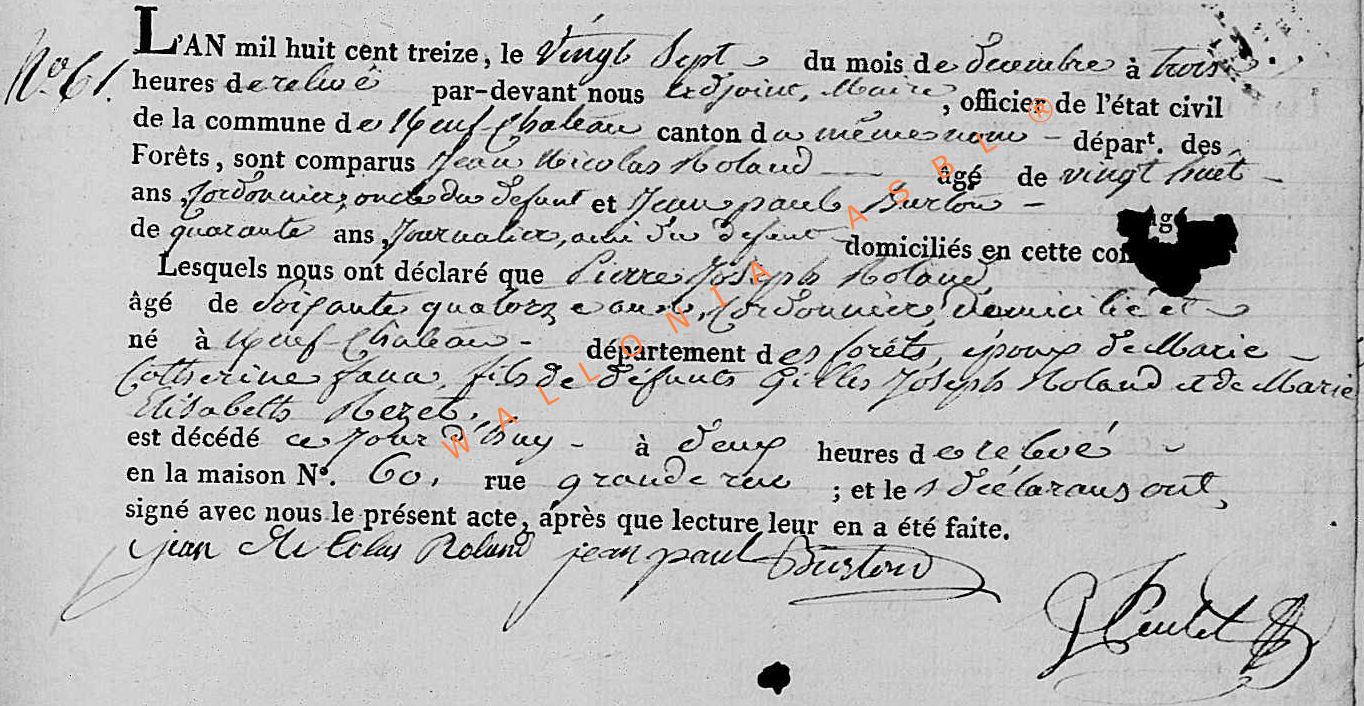 N.o 61.
L'AN mil huit cent treize, le vingt Sept du mois de decembre à trois
heures de relevé par-devant nous adjoint, Maire, officier de l'état civil
de la commune de Neuf-Chateau canton du même nom - départ. des
Forêts, sont comparus Jean Nicolas Roland âgé de vingt huit
ans, Cordonnier, oncle du défunt et Jean paul Burton - âgé
de quarante ans, Journalier, ami du défunt domiciliés en cette com
Lesquels nous ont déclaré que Pierre Joseph Roland,
âgé de Soixante quatorze ans, Cordonnier, domicilié et
né à Neuf-Château - département des forêts, époux de Marie
Catherine fana, fils de défunts Gilles Joseph Roland et de Marie
Elisabeth Rezet.
est décédé ce jour d'huy - à deux heures de relevé
en la maison N°. 60, rue grande rue ; et les déclarans ont
signé avec nous le présent acte, après que lecture leur en a été faite.
jean Nicolas Roland jean paul Burton
WALLONIA ASBL ®